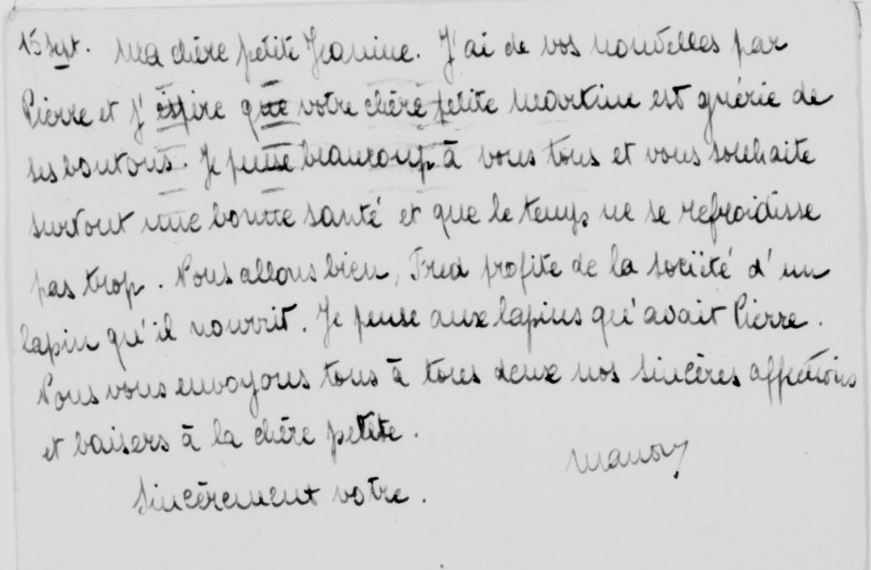 15 sept. Ma chère petite Jeanine. J'ai de vos nouvelles par
Pierre et j'espère que votre chère petite Martine est guérie de
ses boutons. Je pense beaucoup à vous tous et vous souhaite
surtout une bonne santé et que le temps ne se refroidisse
pas trop. Nous allons bien, Fred profite de la société d'un
lapin qu'il nourrit. Je pense aux lapins qu'avait Pierre.
Nous vous envoyons tous à tous deux nos sincères affections
et baisers à la chère petite.
Sincèrement votre.